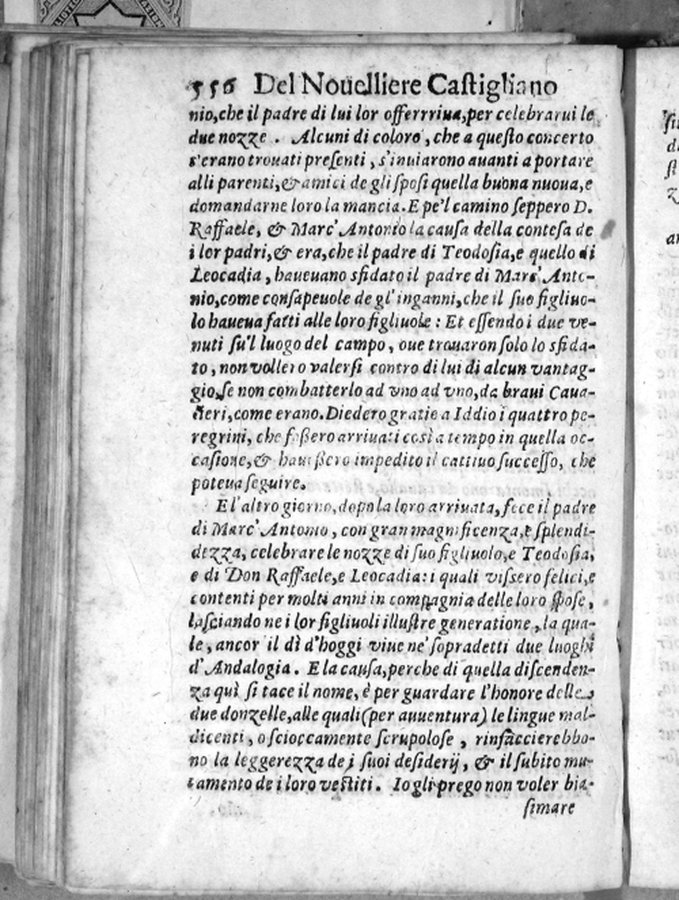 556 Del Nouelliere Castigliano
nio,che il padre di lui lor offerrriua,per celebrarui le
due nozze . Alcuni di coloro, che a questo concerto
s'erano trouati presenti, s'inuiarono auanti a portare
alli parenti,& amici de gli sposi quella buona nuoua,e
domandarne loro la mancia. E pe'l camino seppero D.
Raffaele, & Marc'Antonio la causa della contesa de
i lor padri,& era,che il padre di Teodosia,e quello di
Leocadia, haueuano sfidato il padre di Marc'Anto-
nio,come consapeuole de gl'inganni,che il suo figliuo-
lo haueua fatti alle loro figliuole: Et essendo i due ve-
nuti su'l luogo del campo, oue trouaron solo lo sfida-
to, non vollero valersi contro di lui di alcun vantag-
gio,se non combatterlo ad vno ad vno,da braui Caua-
lieri,come erano. Diedero gratie a Iddio i quattro pe-
regrini, che foßero arriuati così a tempo in quella oc-
casione,& haueßero impedito il cattiuo successo, che
poteua seguire.
E l'altro giorno, dopo la loro arriuata, fece il padre
di Marc'Antonio, con gran magnificenza,e splendi-
dezza, celebrare le nozze di suo figliuolo,e Teodosia,
e di Don Raffaele,e Leocadia: i quali vissero felici,e
contenti per molti anni in compagnia delle loro spose,
lasciando ne i lor figliuoli illustre generatione, la qua-
le, ancor il dì d'hoggi viue ne' sopradetti due luoghi
d'Andalogia. E la causa,perche di quella discenden-
za quì si tace il nome, è per guardare l'honore delle
due donzelle,alle quali (per auuentura) le lingue mal-
dicenti, o scioccamente scrupolose, rinfaccierebbo-
no la leggerezza de i suoi desiderij, & il subito mu-
tamento de i loro vestiti. Io gli prego non voler bia-
simare